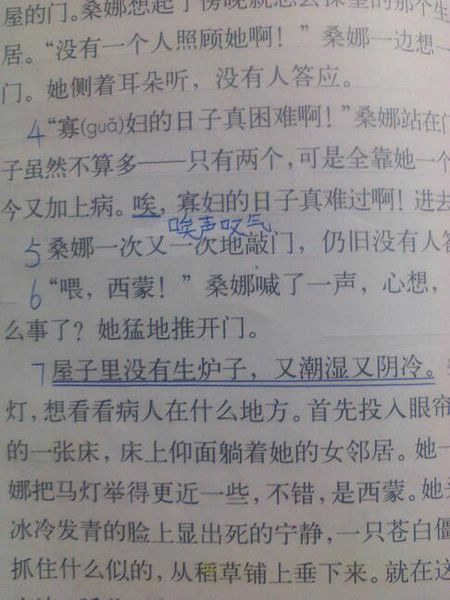 屋的门。桑娜想起了傍晚就想去探望的那个生
居。“没有一个人照顾她啊！”桑娜一边想一
门。她侧着耳朵听，没有人答应。
4 “寡(guǎ)妇的日子真困难啊！”桑娜站在门
子虽然不算多——只有两个，可是全靠她一个
今又加上病。唉，寡妇的日子真难过啊！进去
唉声叹气
5 桑娜一次又一次地敲门，仍旧没有人答
6 “喂，西蒙！”桑娜喊了一声，心想，
么事了？她猛地推开门。
7 屋子里没有生炉子，又潮湿又阴冷。
灯，想看看病人在什么地方。首先投入眼帘
的一张床，床上仰面躺着她的女邻居。她一
娜把马灯举得更近一些，不错，是西蒙。她
冰冷发青的脸上显出死的宁静，一只苍白僵
抓住什么似的，从稻草铺上垂下来。就在这